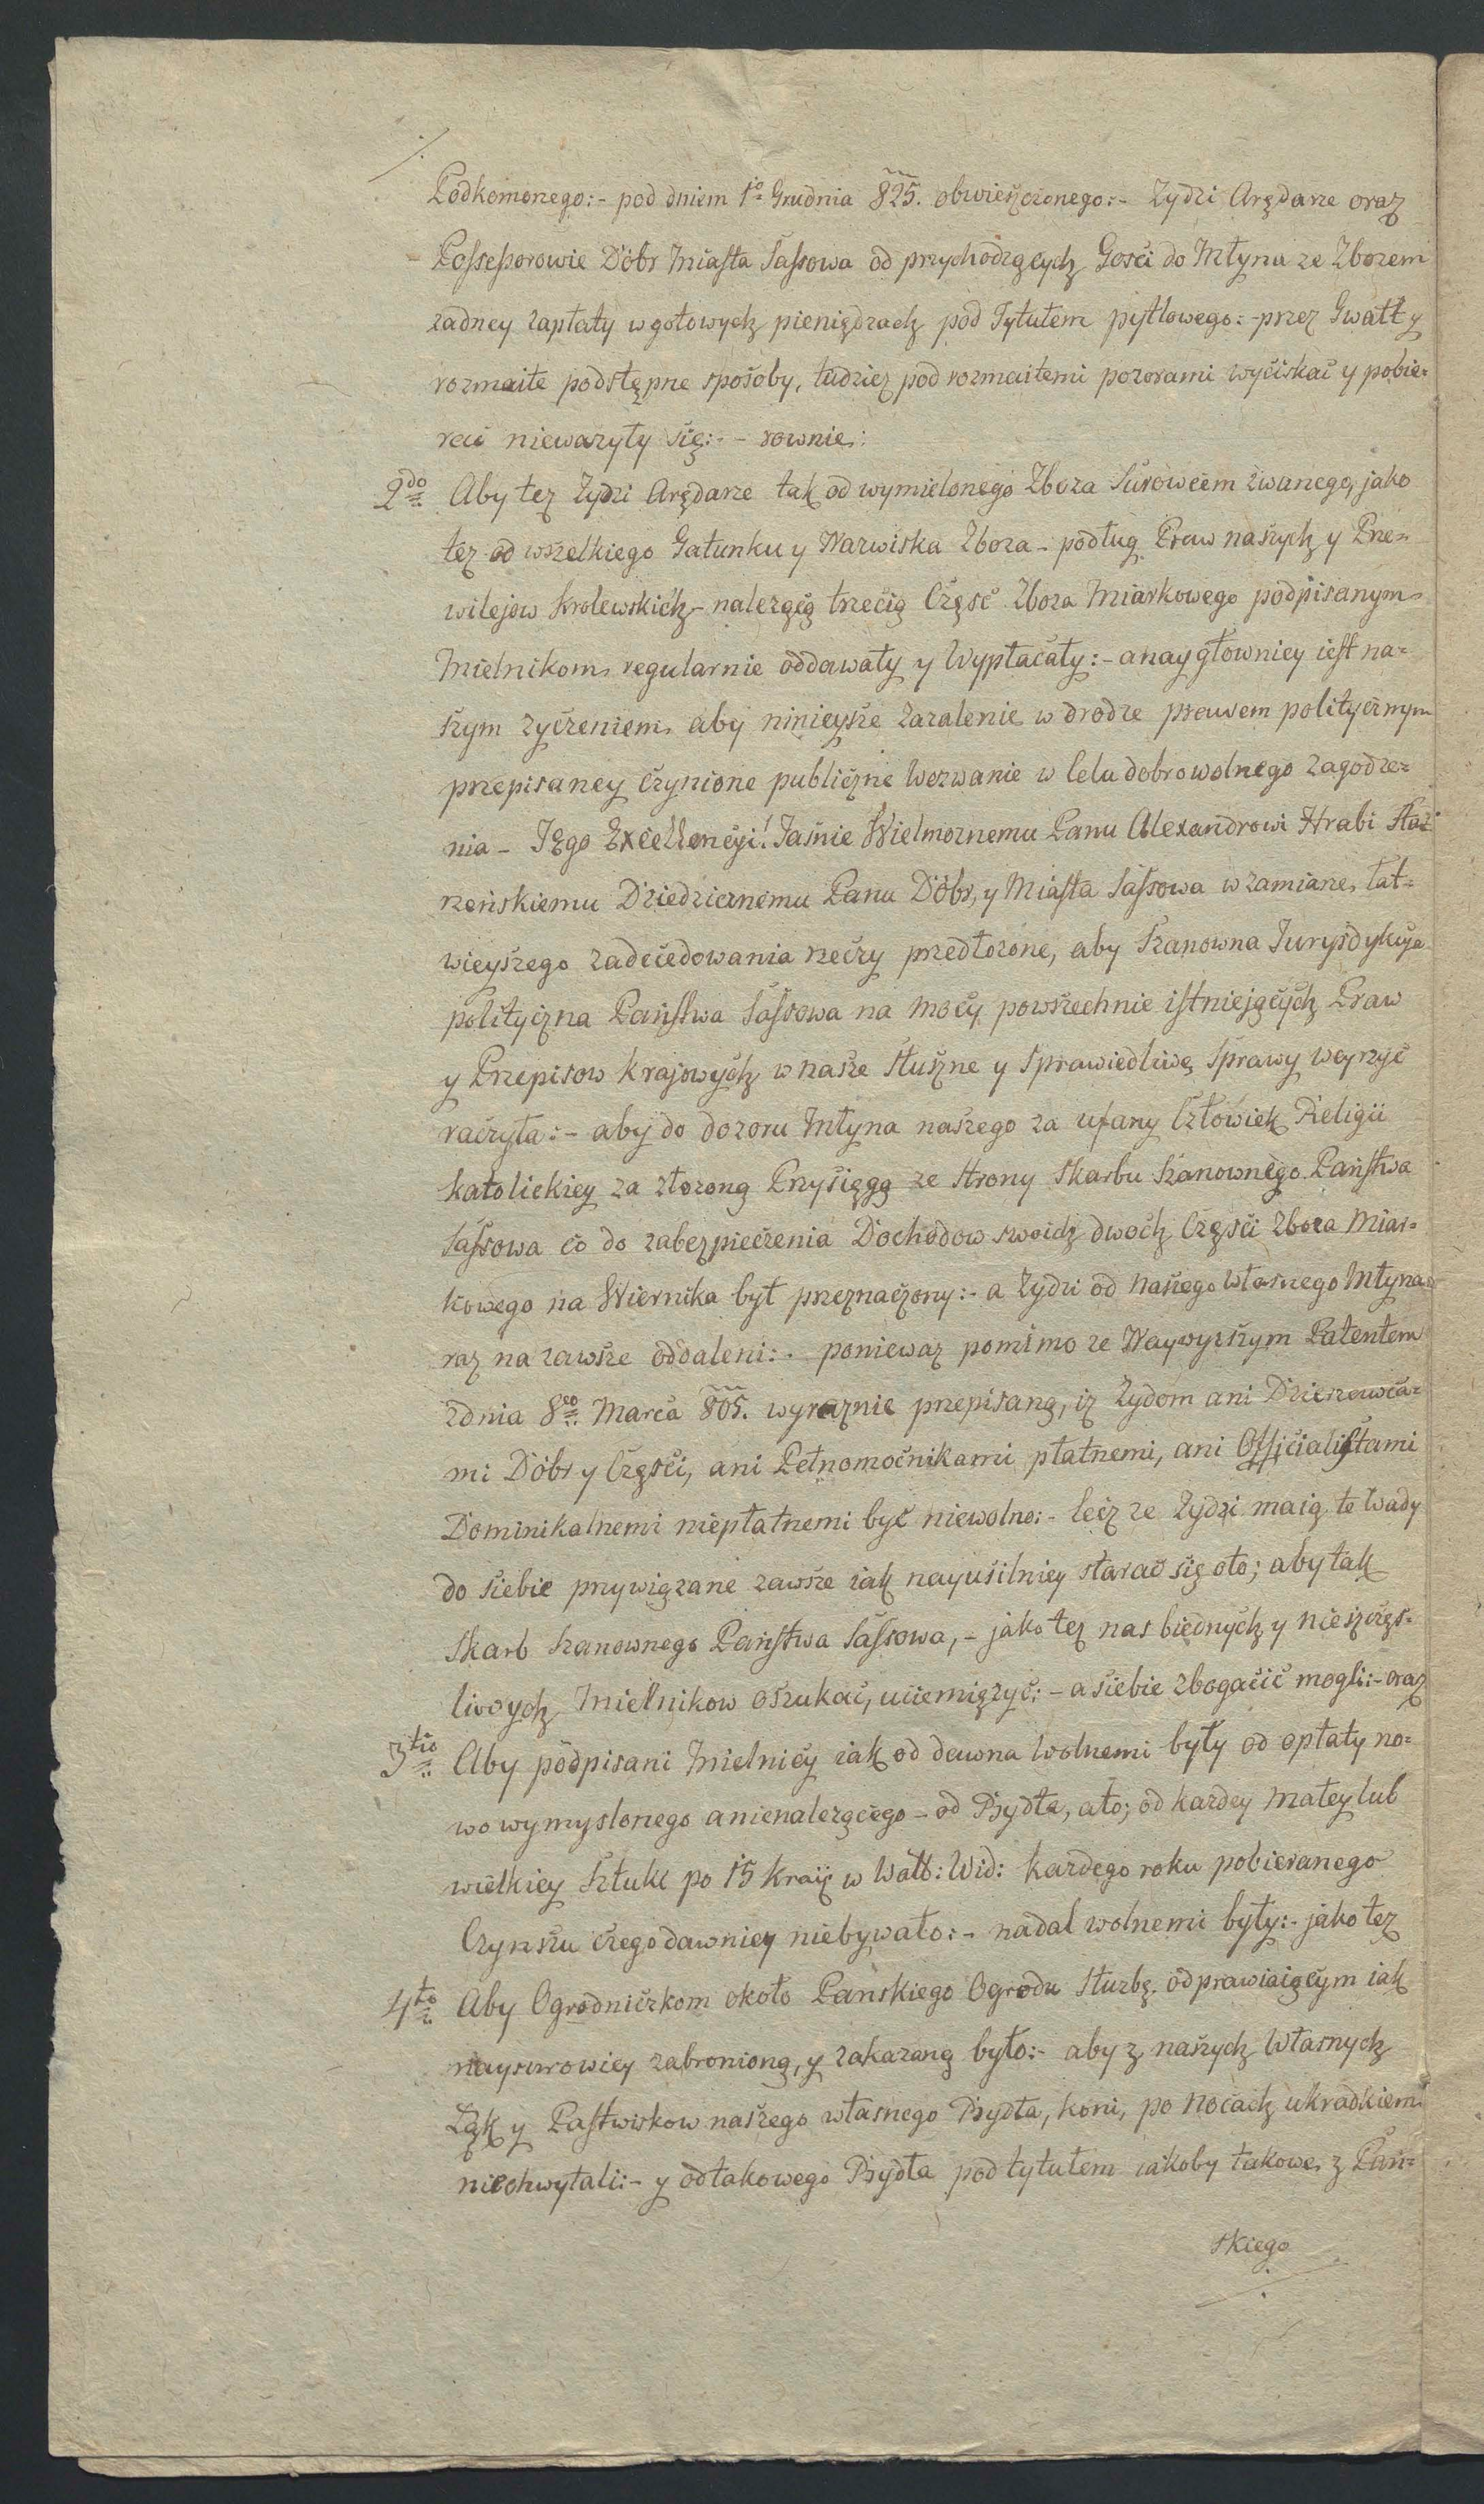 Podkomorzego:- pod dniem 1o Grudnia 825. obwieszczonego:- Zydzi Arędarze oraz
Possessorowie Dóbr Miasta Sassowa od przychodzących Gosci do Młyna ze Zbozem
zadney zapłaty w gotowych pieniądzach pod Tytułem pytlowego:- przez Gwałt y
rozmaite podstępne sposoby, tudziez pod rozmaitemi pozorami wyciskać y pobie=
rać niewazyły się:- - rownie:
2do Aby tez Zydzi Arędarze tak od wymielonego Zboza Surowcem zwanego, jako
tez od wszelkiego Gatunku y Nazwiska Zboza - podług Praw naszych y Prze=
wilejow Krolewskich - nalezącą trzecią Część Zboza Miarkowego podpisanym
Mielnikom regularnie oddawały y Wypłacały:- a naygłowniey iest na=
szym zyczeniem, aby ninieysze Zazalenie w drodze prawem politycznym
przepisaney czynione publiczne Wezwanie w Celu dobrowolnego zagodze=
nia - Jego Excellencyi! Jaśnie Wielmoznemu Panu Alexandrowi Hrabi Sta=
rzeńskiemu Dziedzicznemu Panu Dóbr, y Miasta Sassowa w zamiarze, łat=
wieyszego zadecedowania rzeczy przedłozone, aby Szanowna Jurysdykcya
polityczna Państwa Sassowa na mocy powszechnie istniejących Praw
y Przepisow Krajowych w nasze Słuszne y Sprawiedliwe Sprawy weyrzyć
raczyła:- aby do dozoru Młyna naszego za ufany Człowiek Religii
katolickiey za złozoną Przysięgą ze strony Skarbu Szanownego Państwa
Sassowa co do zabezpieczenia Dochodow swoich dwoch Częsci Zboza Miar=
kowego na Wiernika był przeznaczony:- a Zydzi od Naszego Własnego Młyna
raz na zawsze oddaleni:- poniewaz pomimo ze Naywyzszym Patentem
z dnia 8go Marca 805. wyraznie przepisano, iz Zydom ani Dzierzawca=
mi Dóbr y Częsci, ani Pełnomocnikami płatnemi, ani Officialistami
Dominikalnemi niepłatnemi być niewolno:- lecz ze Zydzi maią te Wady
do siebie przywiązane zawsze iak nayusilniey starać się oto; aby tak
Skarb Szanownego Państwa Sassowa, - jako tez nas biednych y nieszczęs=
liwych Mielnikow oszukać, uciemięzyć:- a siebie zbogacić mogli:- oraz
3tio Aby podpisani Mielnicy iak od dawna Wolnemi były od opłaty no=
wo wymyslonego a nienalezącego - od Bydła, a to; od kazdey Małey lub
wielkiey Sztuki po 15 Kraic w Walt: Wid: kazdego roku pobieranego
Czynszu czego dawniey niebywało:- nadal wolnemi były:- jako tez
4to Aby Ogrodniczkom około Panskiego Ogrodu Słuzbę odprawiaiącym iak
naysurowiey zabroniono, y zakazano było:- aby z naszych Własnych
Łąk y Pastwiskow naszego własnego Bydła, koni, po Nocach ukradkiem
niechwytali:- y od takowego Bydła pod tytułem iakoby takowe z Pań=
skiego